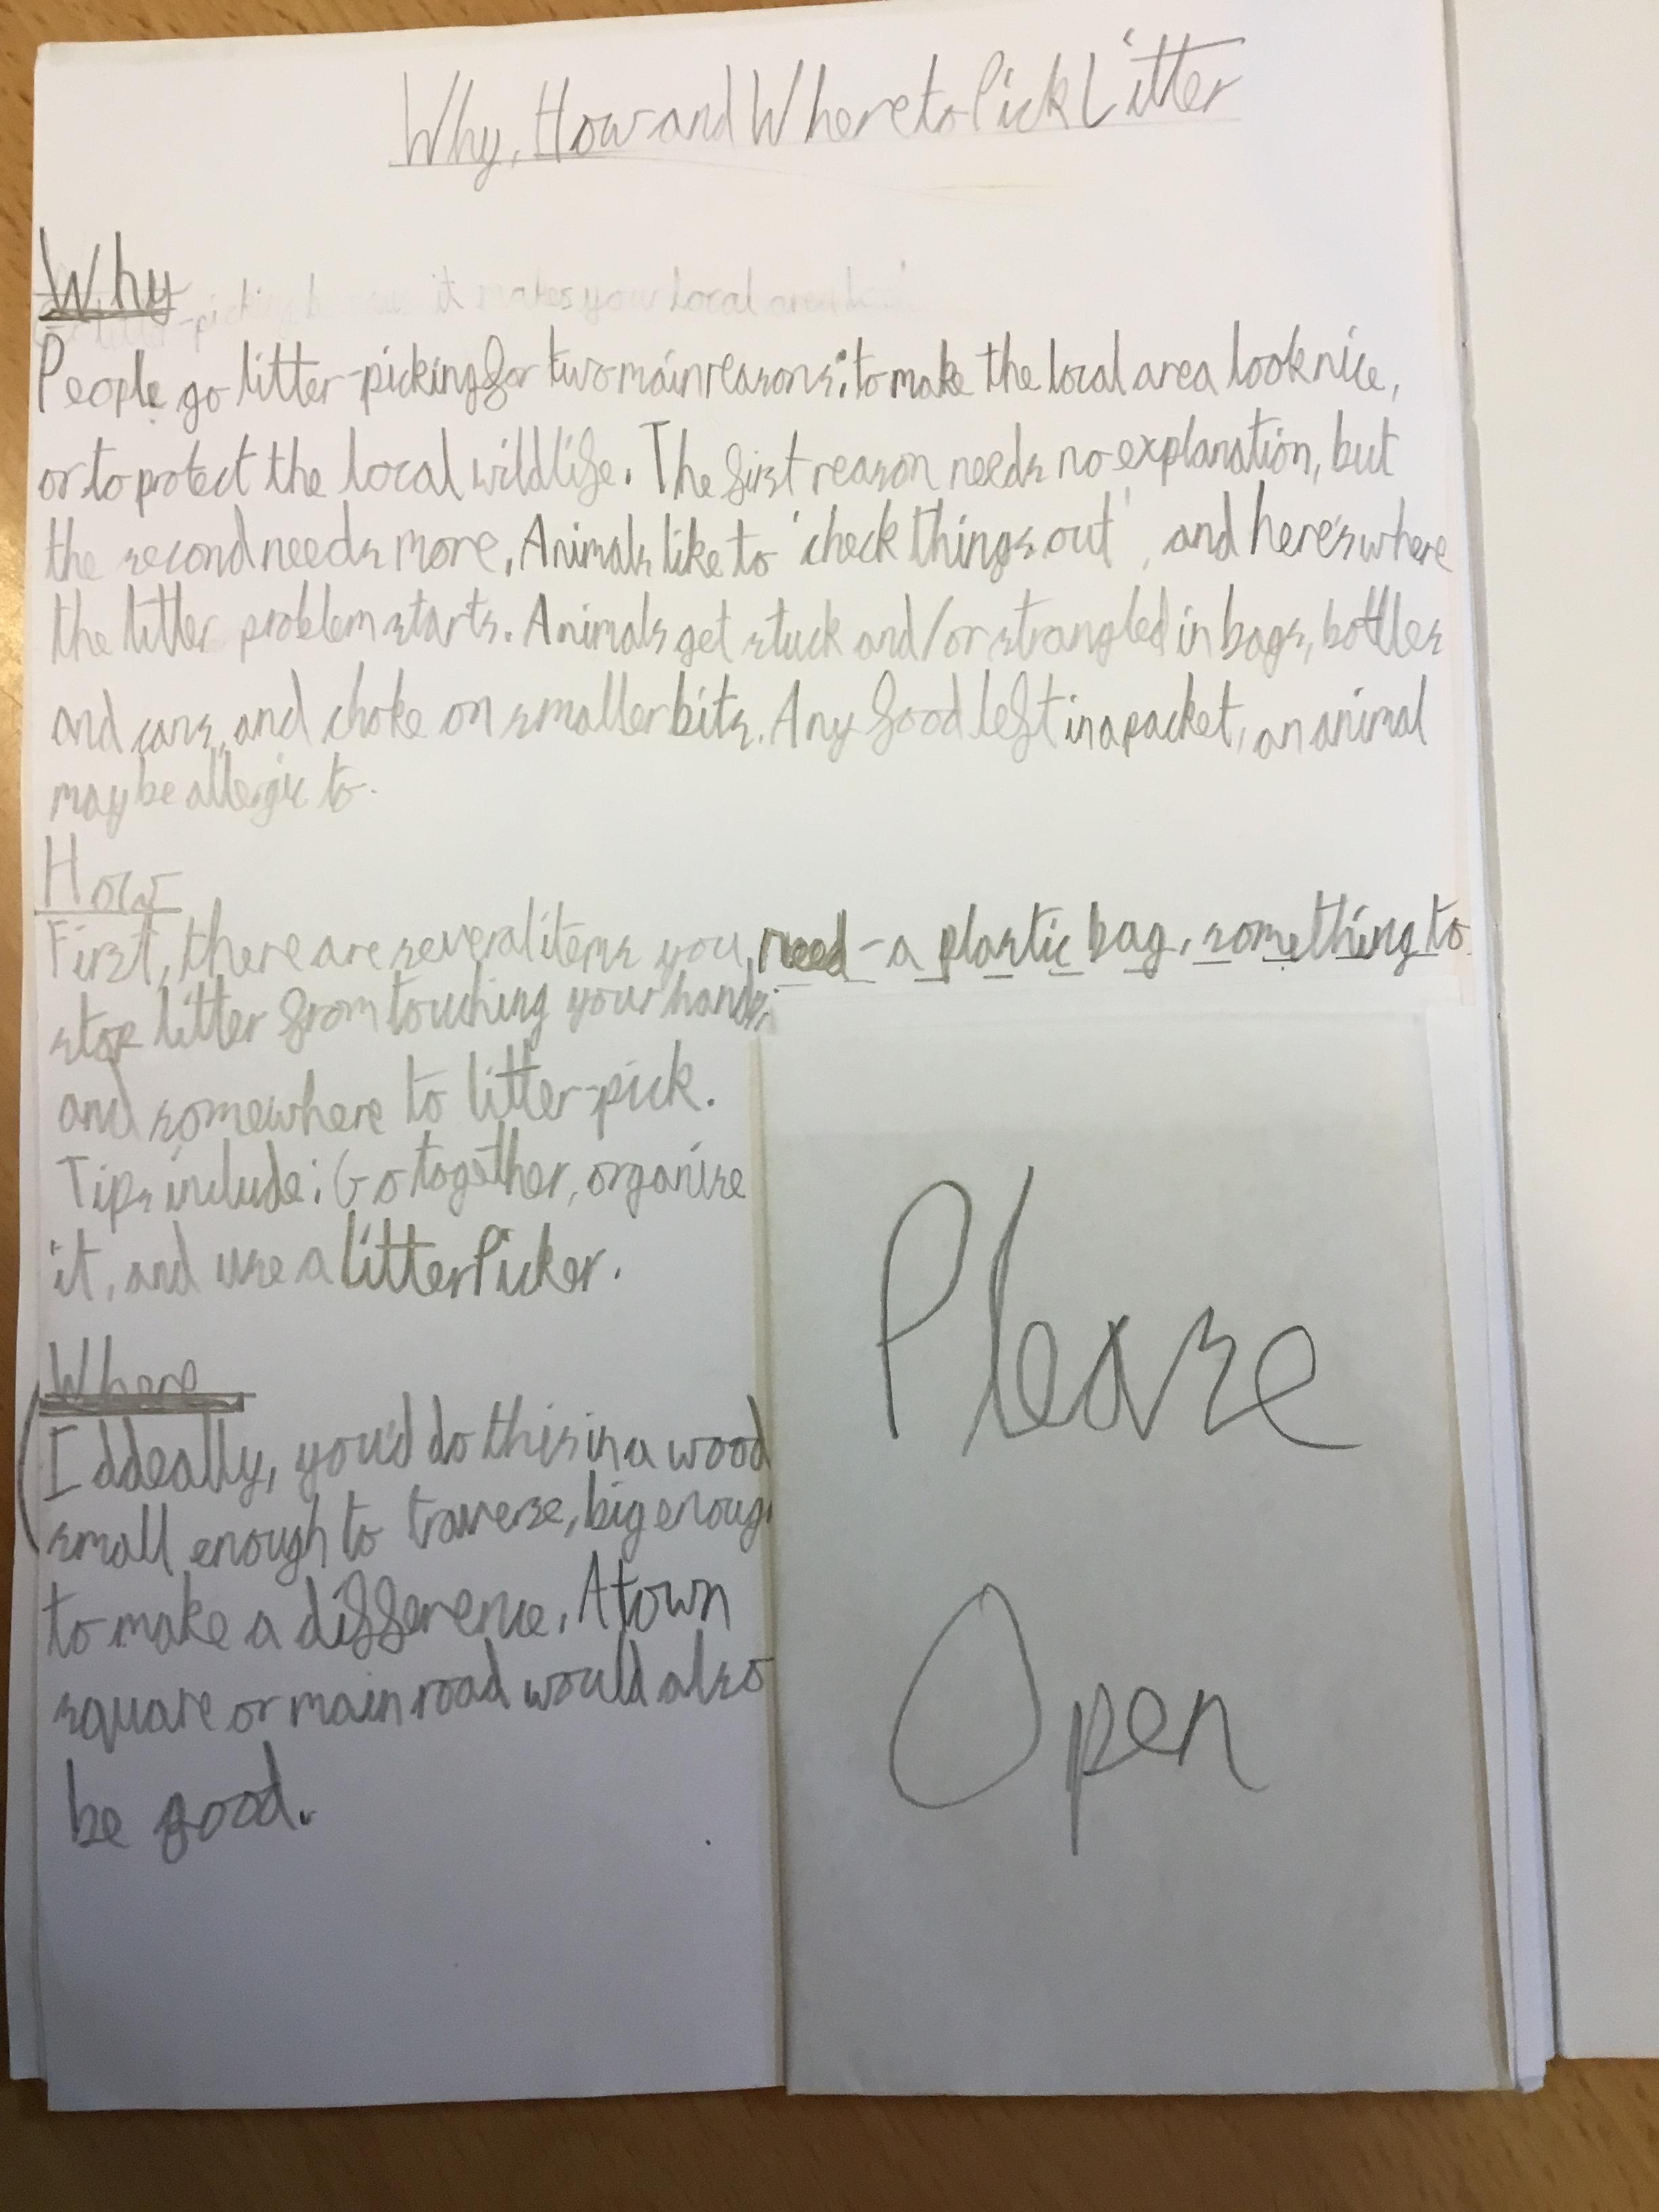 Why, How and Where to Pick Litter
Why
it makes your local area
People go litter-picking for two main reasons: to make the local area look nice,
or to protect the local wildlife. The first reason needs no explanation, but
the second needs more. Animals like to 'check things out', and here's where
the litter problem starts. Animals get stuck and/or strangled in bags, bottles
and cans, and choke on smaller bits. Any food left in a packet, an animal
may be allergic to.
How
First, there are several items you need - a plastic bag, something to
stop litter from touching your hands,
and somewhere to litter-pick.
Tips include: Go together, organise
it, and use a litter Picker.
Where
Iddeally, you'd do this in a wood
small enough to traverse, big enoug
to make a difference. A town
square or main road would also
be good.
Please
Open